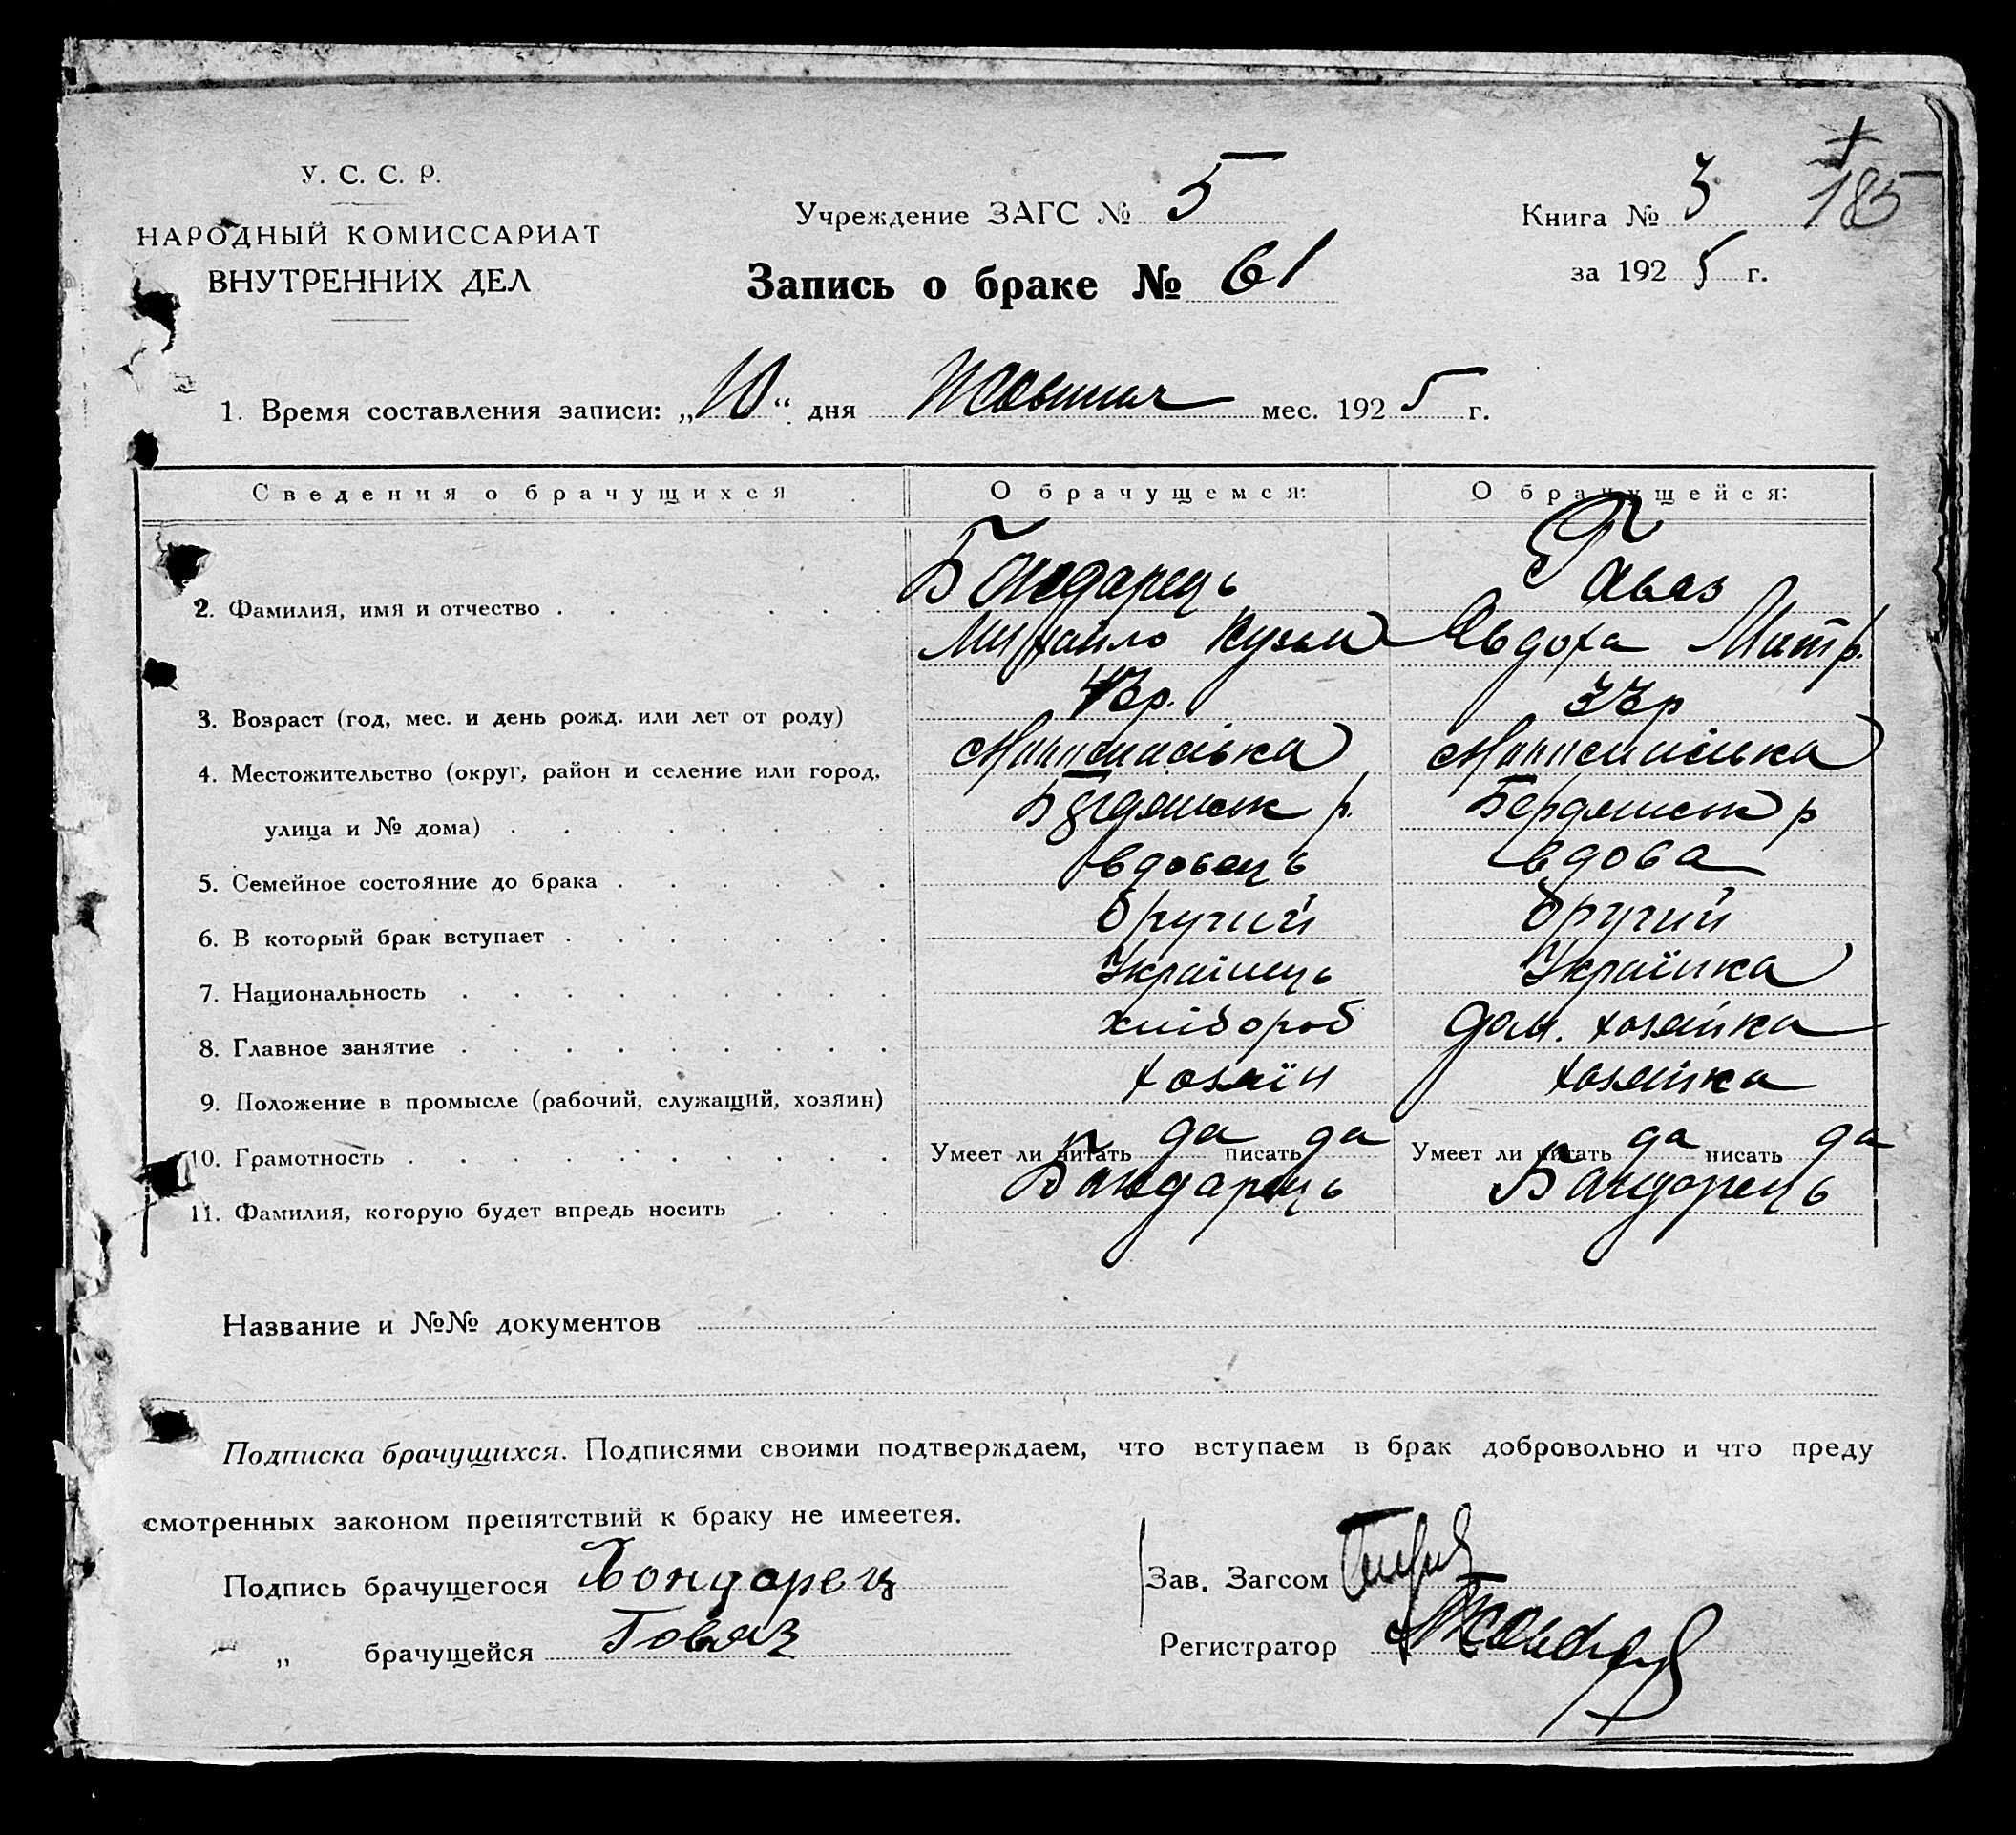 У. С. С. Р.
НАРОДНЫЙ КОМИССАРИАТ
ВНУТРЕННИХ ДЕЛ
Учреждение ЗАГС № 5
Запись о браке № 61
Книга № 3 185
за 1925 г.
1. Время составления записи: „10“ дня Жовтня мес. 1925 г.
Сведения о брачущихся О брачущемся: О брачущейся:
2. Фамилия, имя и отчество Бондарець
Михайло Кузьм Явдоха Митр.
3. Возраст (год, мес. и день рожд. или лет от роду) 43р. 33р
4. Местожительство (округ, район и селение или город,
улица и № дома) Бердянськ р. Бердянськ р
5. Семейное состояние до брака вдовець вдова
6. В который брак вступает другий другий
7. Национальность Украінець Українка
8. Главное занятие хлібороб дом. хозяйка
9. Положение в промысле (рабочий, служащий, хозяин) хозяїн хозяйка
10. Грамотность Умеет ли читать да писать да Умеет ли читать да писать да
11. Фамилия, которую будет впредь носить Бандарець Бандарець
Название и №№ документов
Подписка брачущихся. Подписями своими подтверждаем, что вступаем в брак добровольно и что преду
смотренных законом препятствий к браку не имеетея.
Подпись брачущегося Бондарец Зав. Загсом
„ брачущейся Говяз Регистратор